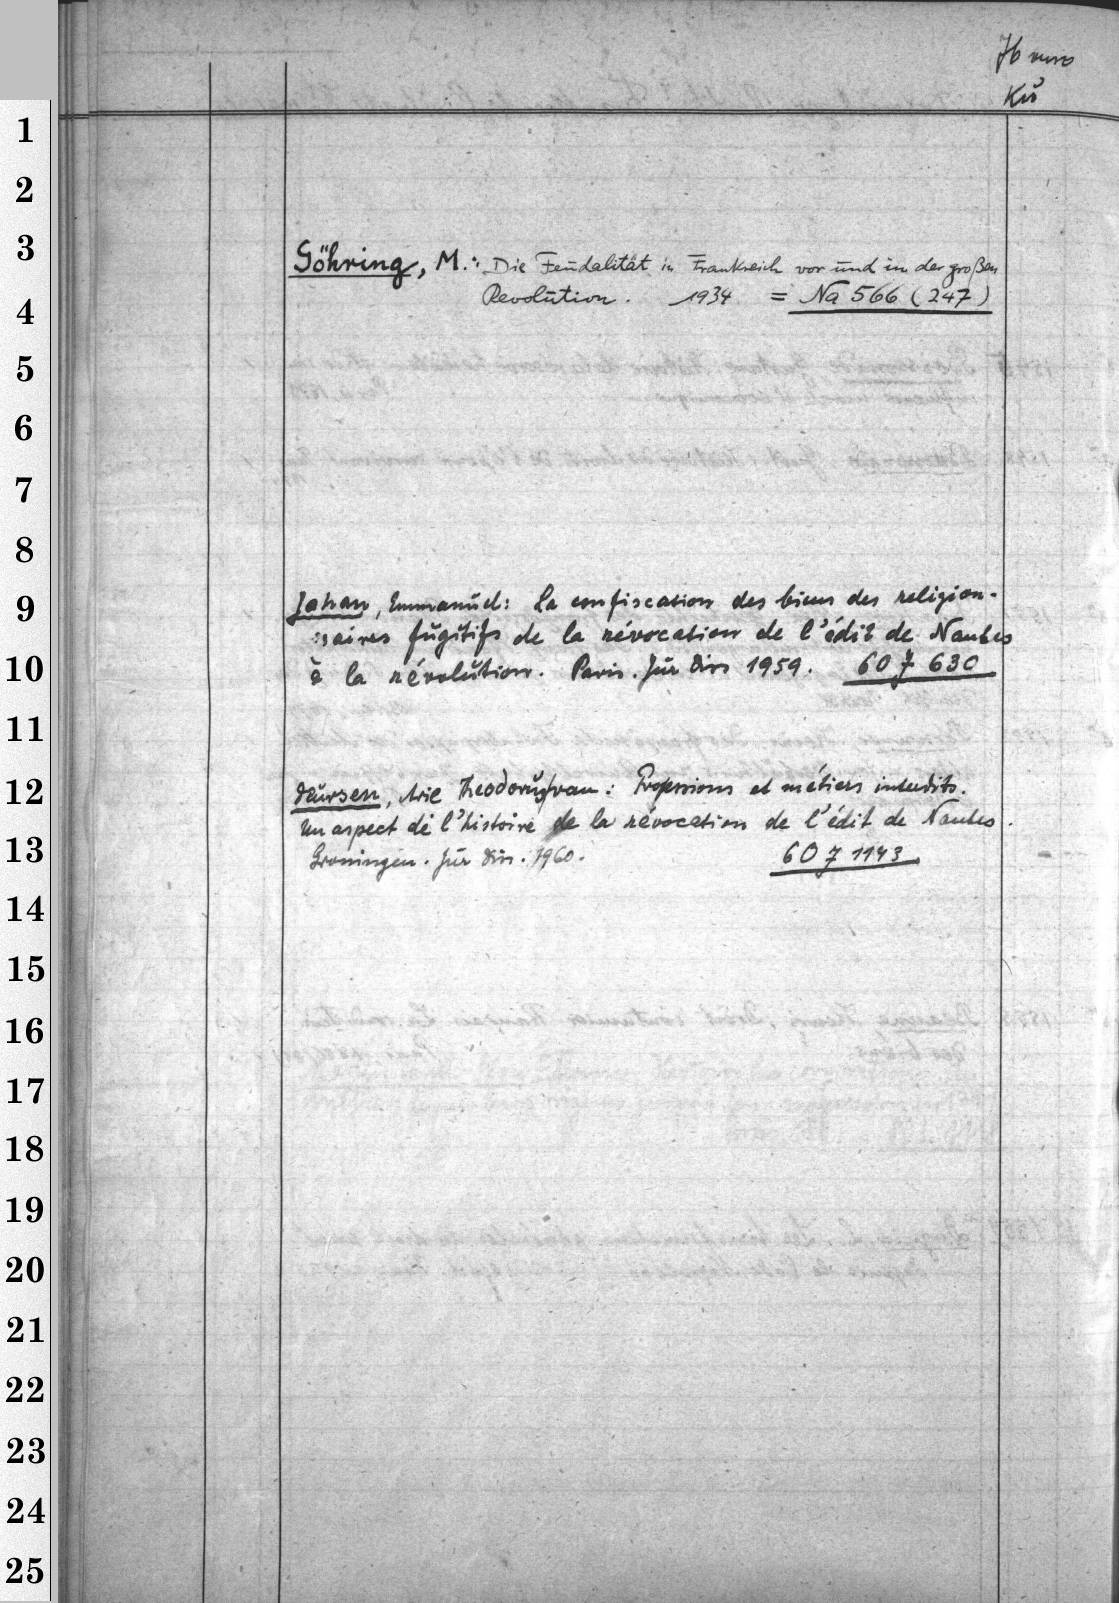 1
2
3
Göhring, M.: Die Feudalität in Frankreich vor und in der großen
Revolution. 1934 = Na 566 (247)
4
5
6
7
8
9
Jahan, Emmanuel: La confiscation des biens des religion-
naires fugitifs de la révocation de l'édit de Nantes
à la révolution. Paris. Jur Diss 1959. 607 630
10
11
12
Deursen, Arie Theodorus van: Professions et métiers interdits.
Un aspect de l'histoire de la révocation de l'édit de Nantes.
13
Groningen. Jur Diss. 1960. 607 1143
14
15
16
17
18
19
20
21
22
23
24
25